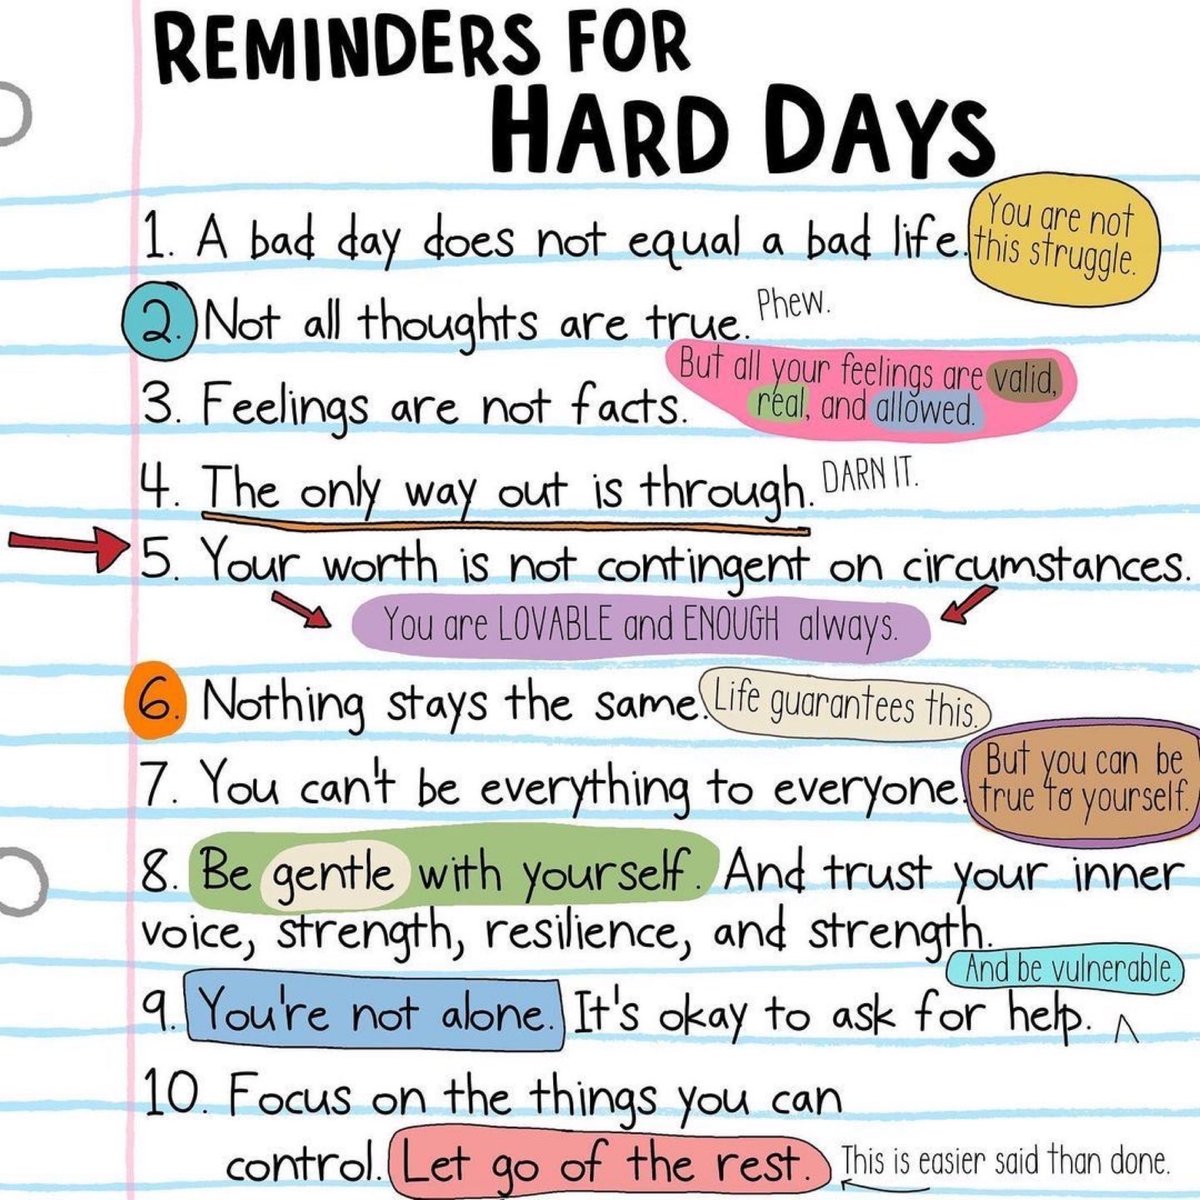 REMINDERS FOR
HARD DAYS
1. A bad day does not equal a bad life.
You are not
this struggle.
2. Not all thoughts are true.
Phew.
3. Feelings are not facts.
But all your feelings are valid,
real, and allowed.
4. The only way out is through.
DARN IT.
5. Your worth is not contingent on circumstances.
You are LOVABLE and ENOUGH always.
6. Nothing stays the same.
Life guarantees this.
7. You can't be everything to everyone.
But you can be
true to yourself.
8. Be gentle with yourself. And trust your inner
voice, strength, resilience, and strength.
And be vulnerable.
9. You're not alone. It's okay to ask for help.
10. Focus on the things you can
control. Let go of the rest.
This is easier said than done.